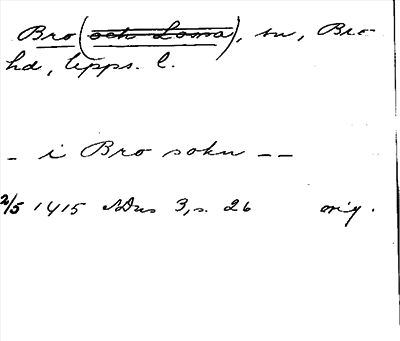 Bro (och Lossa), sn, Bro-
hd, Upps. l.
_ i Bro sokn _ _
2/5 1415 NDus 3, s. 26 orig.